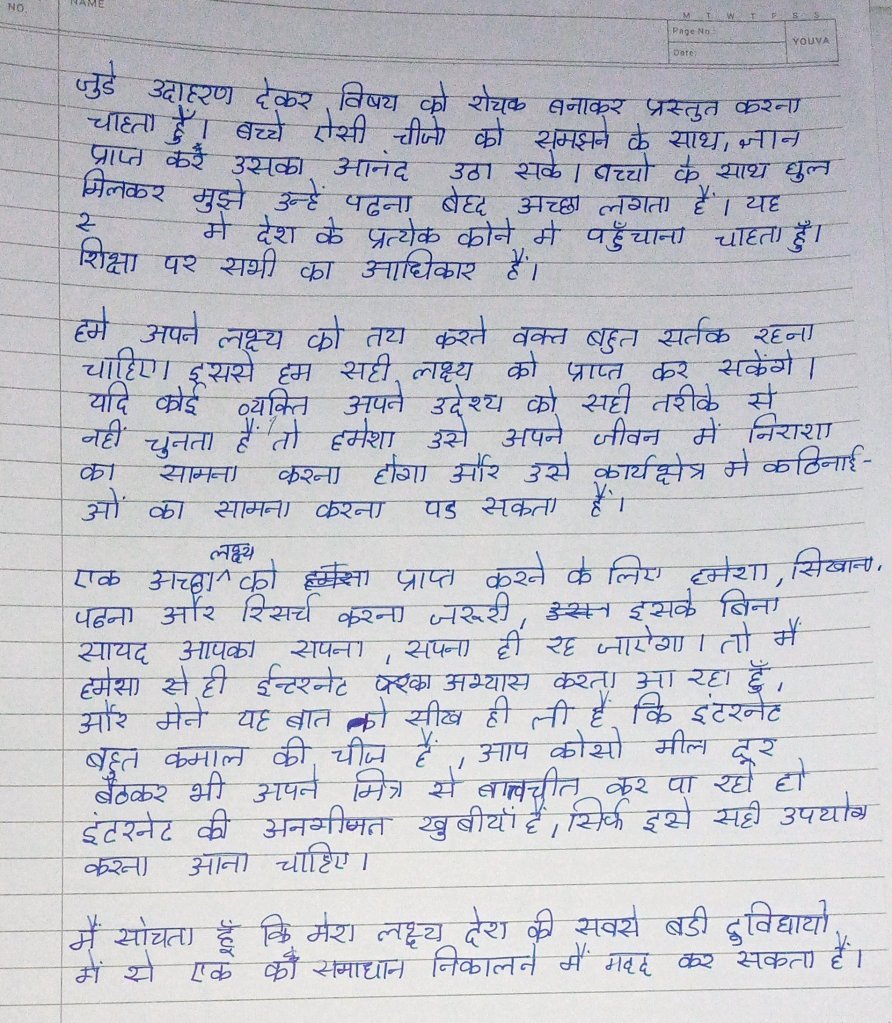 NO.
NAME
M T W T F S S
Page No.:
Date:
YOUVA
जुडे उदाहरण देकर विषय को रोचक बनाकर प्रस्तुत करना
चाहता हूँ। बच्चे ऐसी चीजो को समझने के साथ, ज्ञान
प्राप्त करें उसका आनंद उठा सके। बच्चो के साथ घुल
मिलकर मुझे उन्हें पढना बेहद अच्छा लगता हैं। यह
मे देश के प्रत्येक कोने मे पहुँचाना चाहता हुँ।
शिक्षा पर सभी का आधिकार हैं।
हमे अपने लक्ष्य को तय करते वक्त बहुत सर्तक रहना
चाहिए। इससे हम सही लक्ष्य को प्राप्त कर सकेंगे।
यदि कोई व्यक्ति अपने उदेश्य को सही तरीके से
नहीं चुनता हैं तो हमेशा उसे अपने जीवन में निराशा
का सामना करना होगा और उसे कार्यक्षेत्र मे कठिनाई-
ओं का सामना करना पड सकता हैं।
एक अच्छा लक्ष्य को प्राप्त करने के लिए हमेशा, सिखाना,
पढना और रिसर्च करना जरूरी, इसके बिना
सायद आपका सपना, सपना ही रह जाऐगा। तो मैं
हमेसा से ही ईन्टरनेट का अभ्यास करता आ रहा हुँ,
और मेने यह बात तो सीख ही ली हैं कि इंटरनेट
बहुत कमाल की चीज हैं, आप कोसो मील दूर
बैठकर भी अपने मित्र से बातचीत कर पा रहे हो
इंटरनेट की अनगीनत खुबीयाँ हैं, सिर्फ इसे सही उपयोग
करना आना चाहिए।
मैं सोचता हूँ कि मेरा लक्ष्य देश की सबसे बडी दुविधायो
में से एक को समाधान निकालने मैं मदद कर सकता हैं।